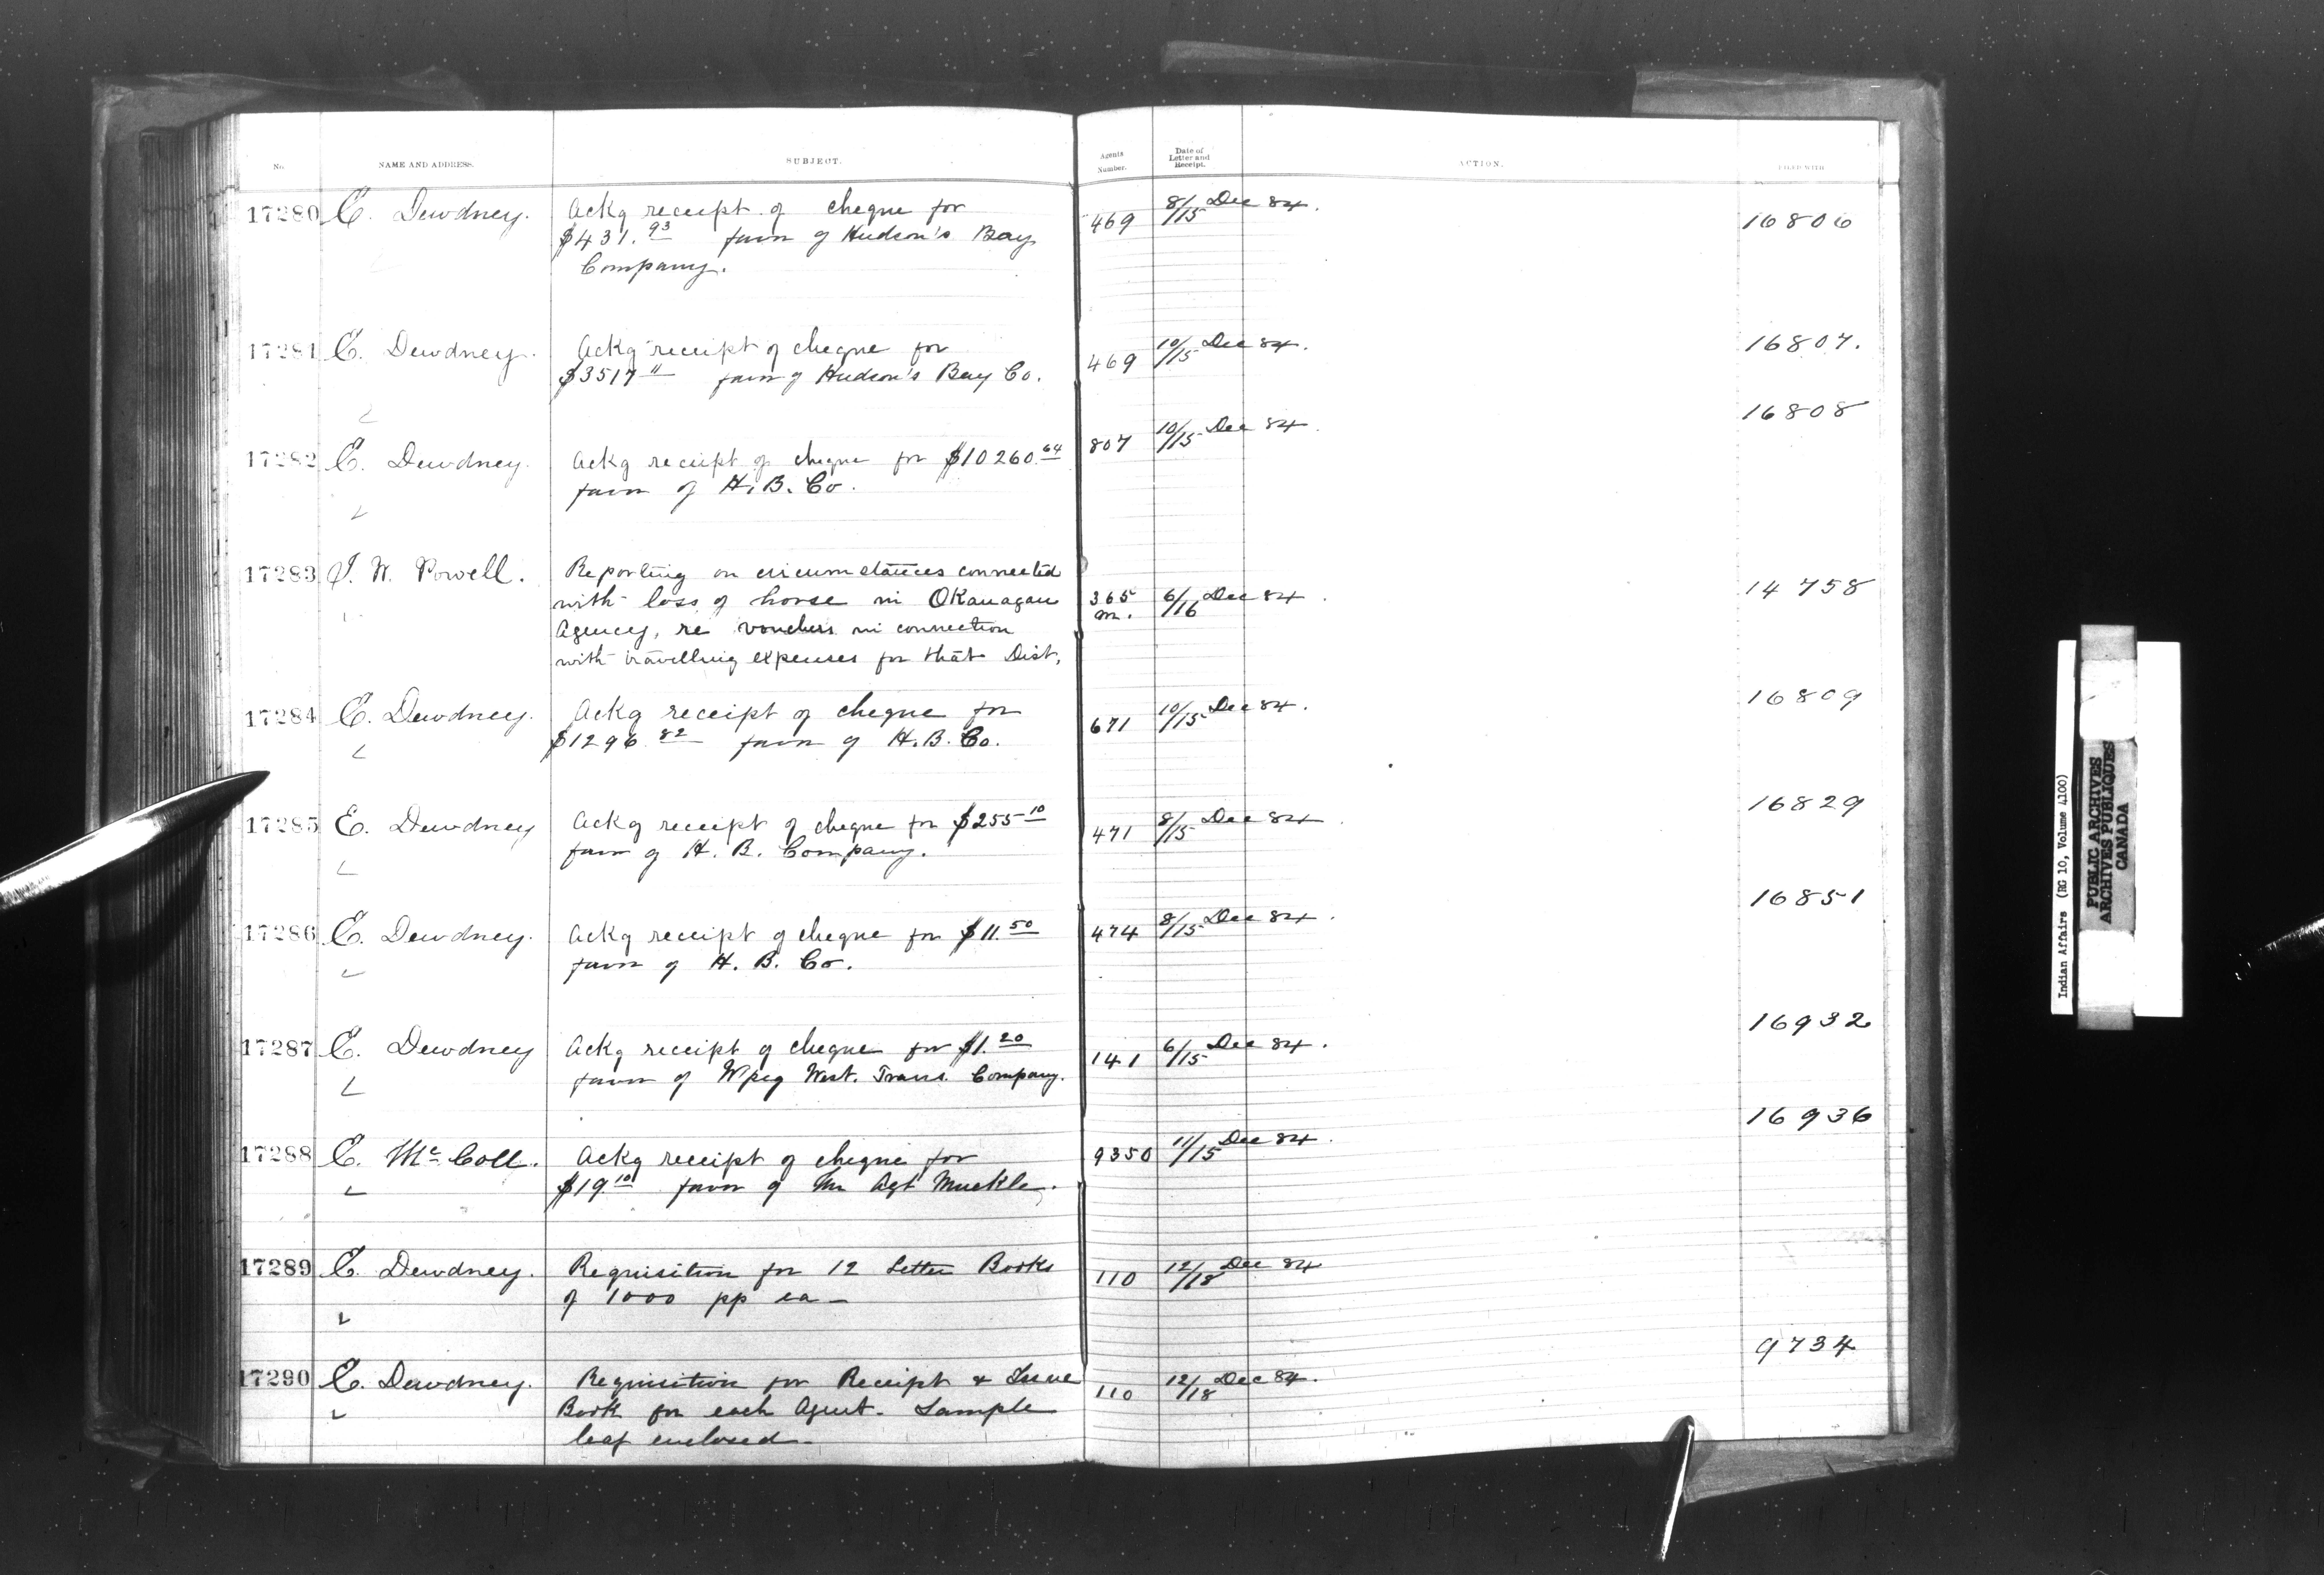 No. NAME AND ADDRESS. SUBJECT. Agents Number. Date of Letter and Receipt. ACTION. FILED WITH
17280 E. Dewdney. Ackg receipt of cheque for 469 8/15 Dec 84. 16806
$431.93 favor of Hudson's Bay
Company.
17281 E. Dewdney. Ackg receipt of cheque for 469 10/15 Dec 84. 16807.
$3517 11 favor of Hudson's Bay Co.
17282 E. Dewdney. Ackg receipt of cheque for $10260.64 807 10/15 Dec 84. 16808
favor of H. B. Co.
17283 I. W. Powell. Reporting on circumstances connected
with loss of horse in Okanagan 365 m. 6/16 Dec 84. 14758
Agency, re vouchers in connection
with travelling expenses for that Dist.
17284 E. Dewdney. Ackg receipt of cheque for 671 10/15 Dec 84. 16809
$1296.82 favor of H. B. Co.
17285 E. Dewdney Ackg receipt of cheque for $255 10 471 8/15 Dec 84 16829
favor of H. B. Company.
17286 E. Dewdney. Ackg receipt of cheque for $11.50 474 8/15 Dec 84. 16851
favor of H. B. Co.
17287 E. Dewdney Ackg receipt of cheque for $1.20 141 6/15 Dec 84. 16932
favor of Wpeg West. Trans. Company.
17288 E. McColl. Ackg receipt of cheque for 9350 11/15 Dec 84. 16936
$19.10 favor of Mr Agt Muckle.
17289 E. Dewdney. Requisition for 12 Letter Books 110 12/18 Dec 84
of 1000 pp ea —
17290 E. Dewdney. Requisition for Receipt & Issue 110 12/18 Dec 84. 9734
Book for each Agent. Sample
leaf enclosed —
Indian Affairs (RG 10, Volume 4100)
PUBLIC ARCHIVES
ARCHIVES PUBLIQUES
CANADA